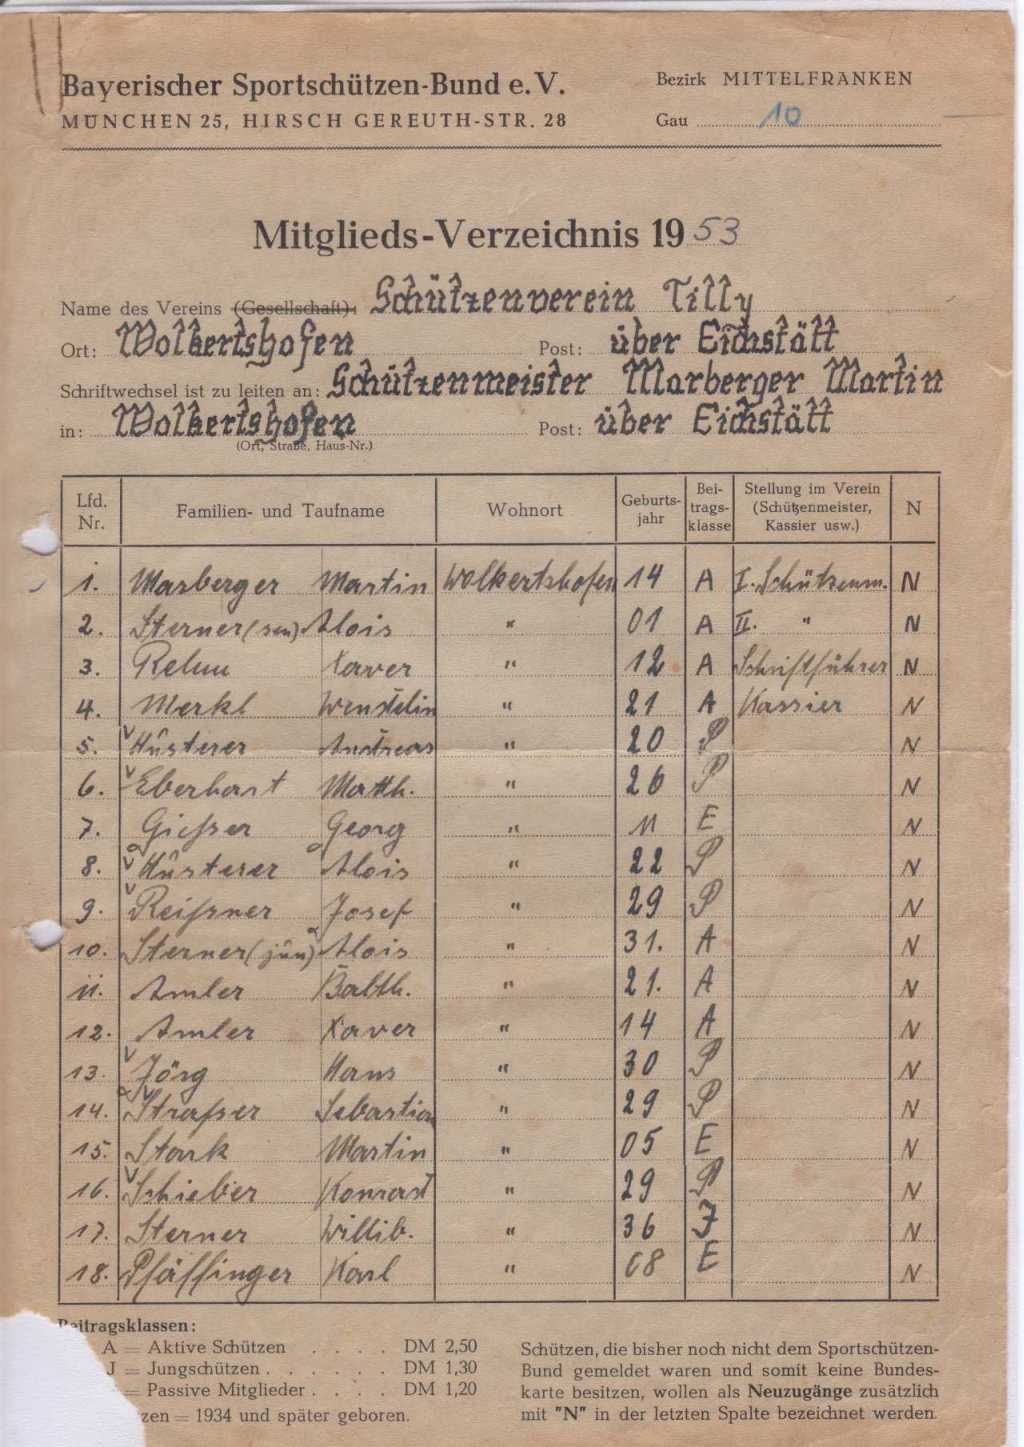 Bayerischer Sportschützen-Bund e. V.
Bezirk MITTELFRANKEN
MÜNCHEN 25, HIRSCH GEREUTH-STR. 28
Gau 10
Mitglieds-Verzeichnis 1953
Name des Vereins (Gesellschaft): Schützenverein Tilly
Ort: Wolkertshofen Post: über Eichstätt
Schriftwechsel ist zu leiten an: Schützenmeister Marberger Martin
in: Wolkertshofen Post: über Eichstätt
(Ort, Straße, Haus-Nr.)
Lfd. Nr. Familien- und Taufname Wohnort Geburts-jahr Bei-trags-klasse Stellung im Verein (Schützenmeister, Kassier usw.) N
1. Marberger Martin Wolkertshofen 14 A I. Schützenm. N
2. Sterner (sen) Alois " 01 A II. " N
3. Rehm Xaver " 12 A Schriftführer N
4. Merkl Wendelin " 21 A Kassier N
5. Husterer Andreas " 20 P N
6. Eberhart Matth. " 26 P N
7. Giesser Georg " 11 E N
8. Husterer Alois " 22 P N
9. Reissner Josef " 29 P N
10. Sterner (jun) Alois " 31. A N
11. Amler Balth. " 21. A N
12. Amler Xaver " 14 A N
13. Jörg Hans " 30 P N
14. Strasser Sebastian " 29 P N
15. Stark Martin " 05 E N
16. Schieber Konrad " 29 P N
17. Sterner Willib. " 36 J N
18. Pfäffinger Karl " 08 E N
Beitragsklassen:
A = Aktive Schützen . . . . DM 2,50
J = Jungschützen . . . . . . DM 1,30
= Passive Mitglieder . . . . DM 1,20
zen = 1934 und später geboren.
Schützen, die bisher noch nicht dem Sportschützen-
Bund gemeldet waren und somit keine Bundes-
karte besitzen, wollen als Neuzugänge zusätzlich
mit "N" in der letzten Spalte bezeichnet werden.